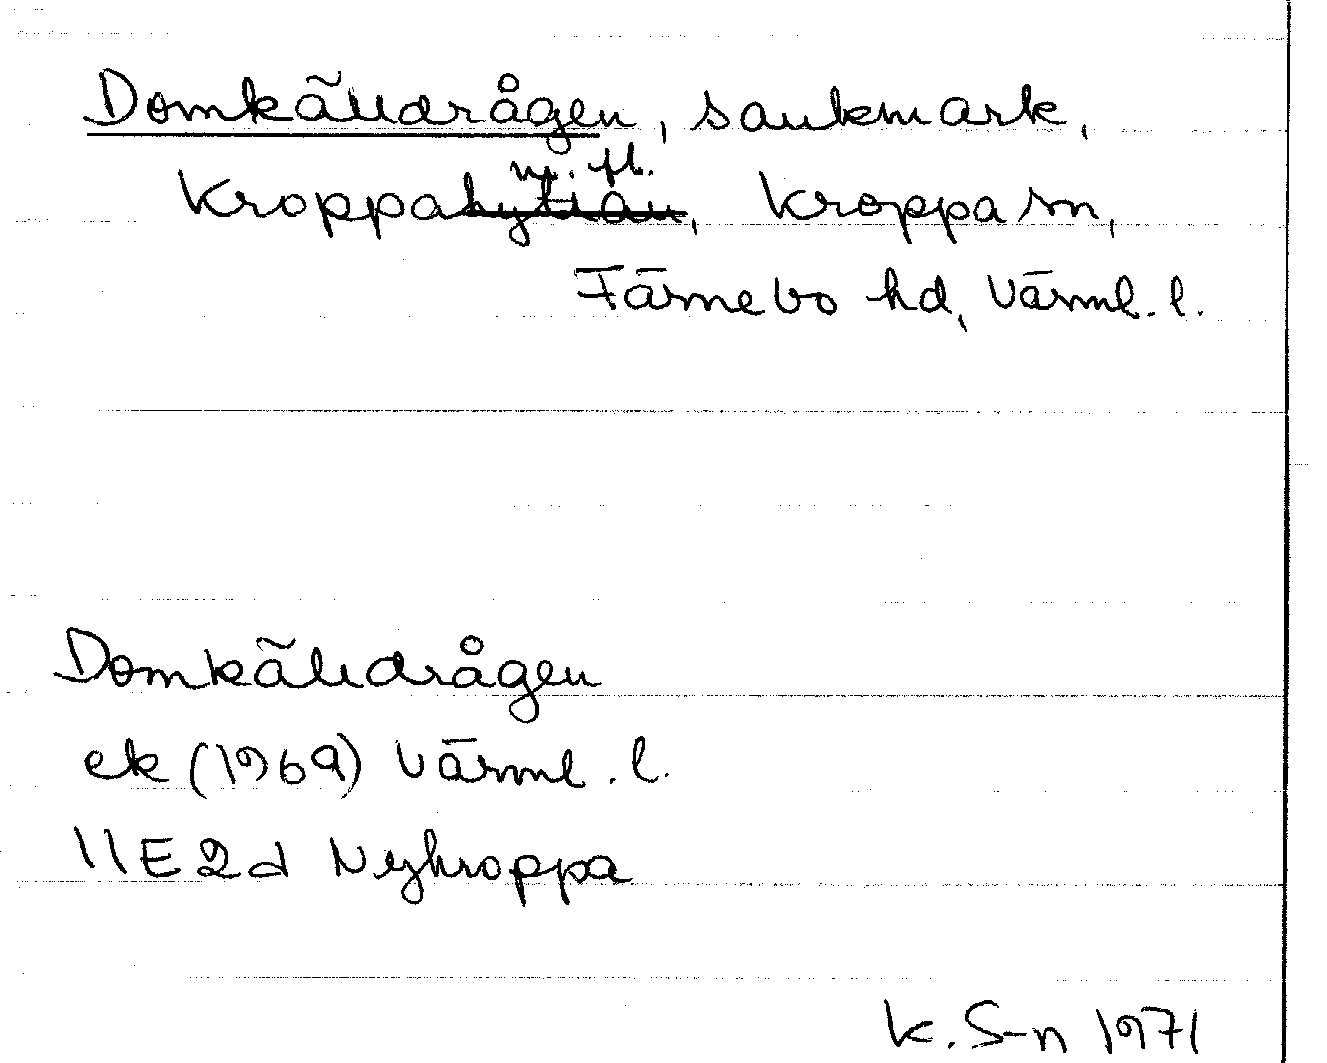 Domkälldrågen, sankmark,
m. fl.
Kroppahyttan, Kroppa sn,
Färnebo hd, Värml. l.
Domkälldrågen
ek (1969) Värml. l.
11E2d Nykroppa
K. S-n 1971